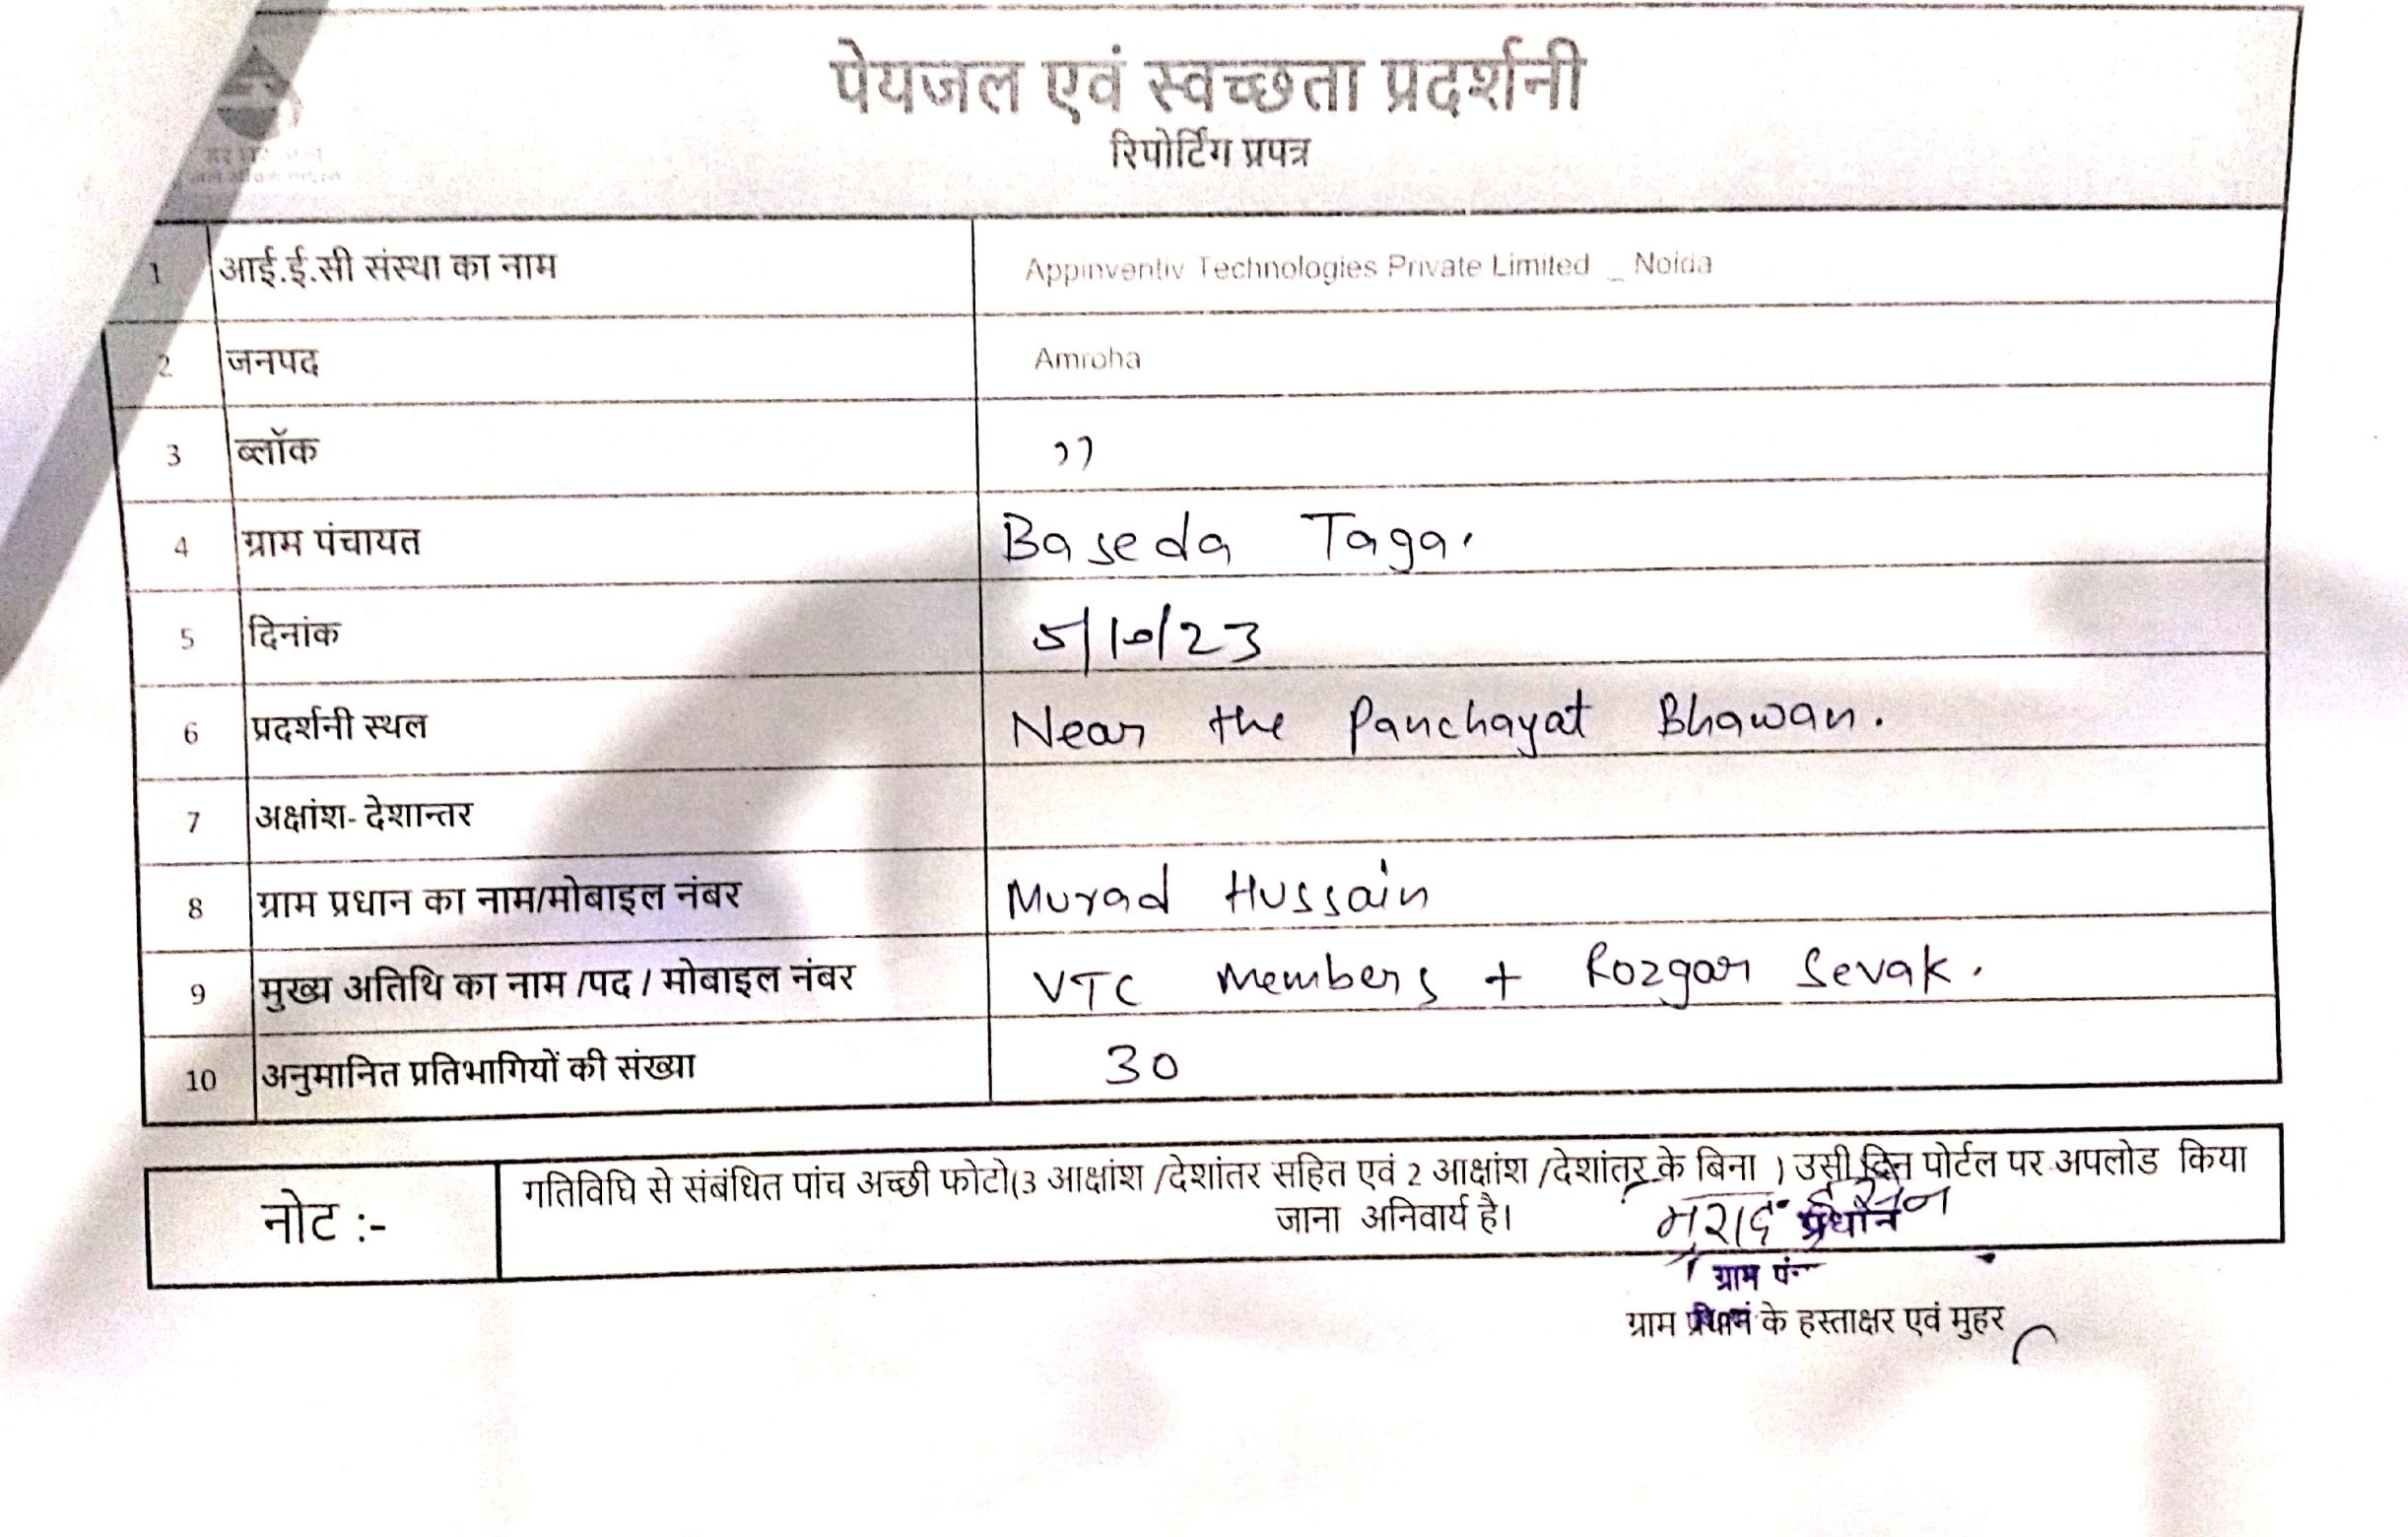 पेयजल एवं स्वच्छता प्रदर्शनी
रिपोर्टिंग प्रपत्र
1 आई.ई.सी संस्था का नाम Appinventiv Technologies Private Limited _ Noida
2 जनपद Amroha
3 ब्लॉक ,,
4 ग्राम पंचायत Baseda Taga.
5 दिनांक 5/10/23
6 प्रदर्शनी स्थल Near the Panchayat Bhawan.
7 अक्षांश- देशान्तर
8 ग्राम प्रधान का नाम/मोबाइल नंबर Murad Hussain
9 मुख्य अतिथि का नाम /पद / मोबाइल नंबर VTC Members + Rozgar Sevak.
10 अनुमानित प्रतिभागियों की संख्या 30
नोट :- गतिविधि से संबंधित पांच अच्छी फोटो(3 आक्षांश /देशांतर सहित एवं 2 आक्षांश /देशांतर के बिना ) उसी दिन पोर्टल पर अपलोड किया
जाना अनिवार्य है।
प्रधान
ग्राम
ग्राम प्रधान के हस्ताक्षर एवं मुहर